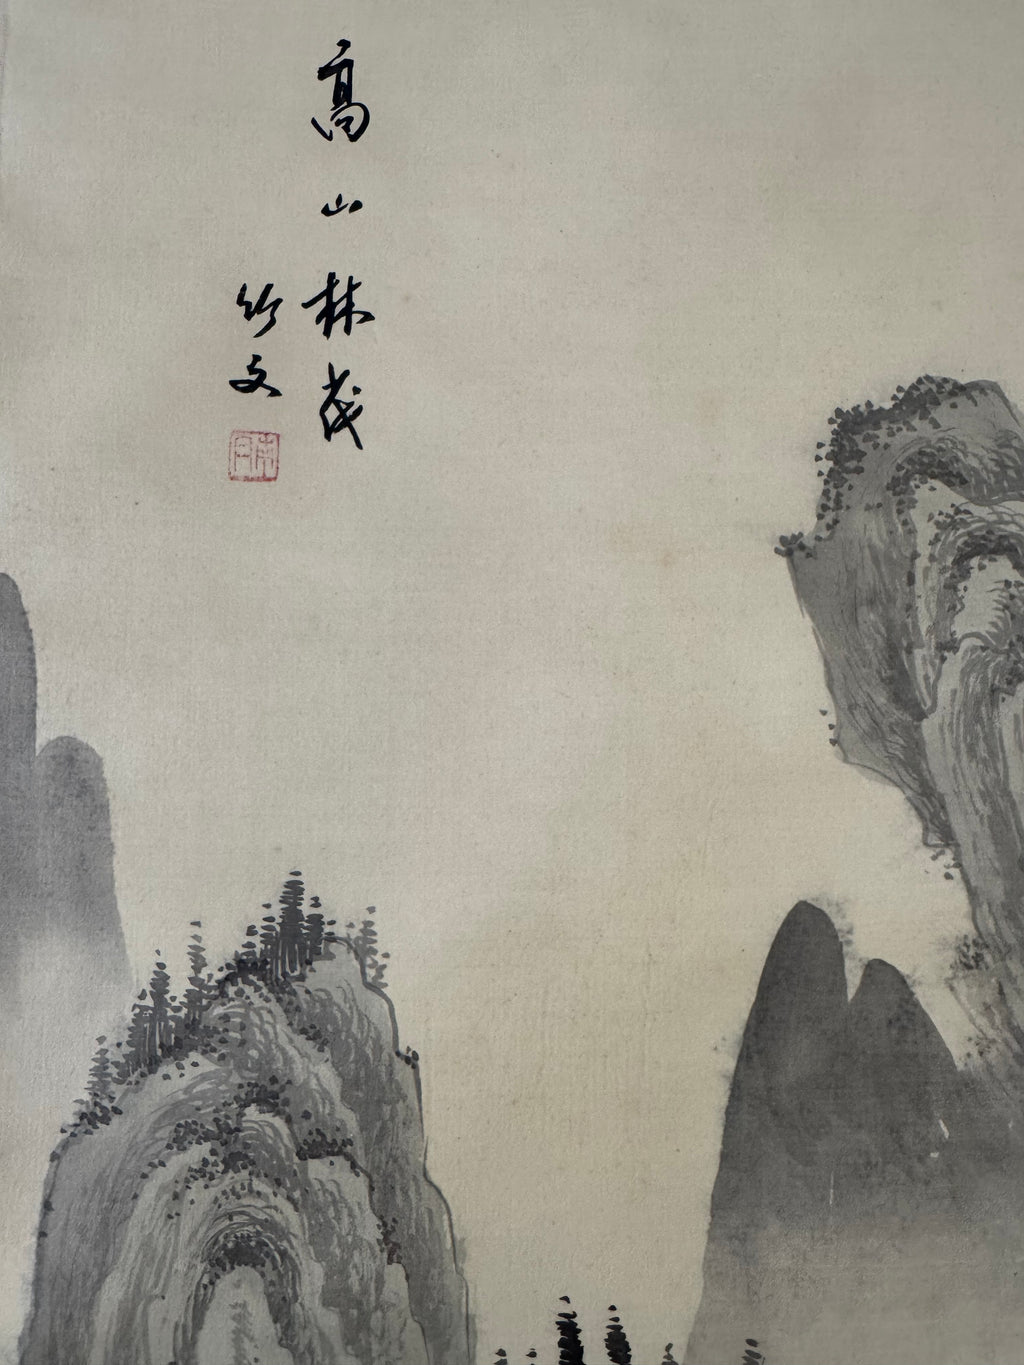 高山林茂
竹文